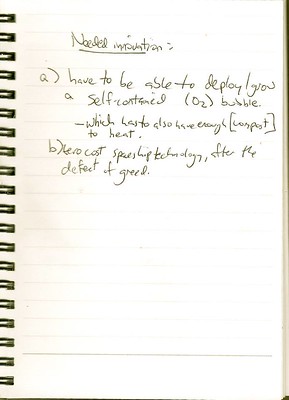 Needed innovation:
a) have to be able to deploy/grow
a self-contained (O2) bubble.
- which has to also have enough [compost]
to heat.
b) zero cost spaceship technology, after the
defeat of greed.